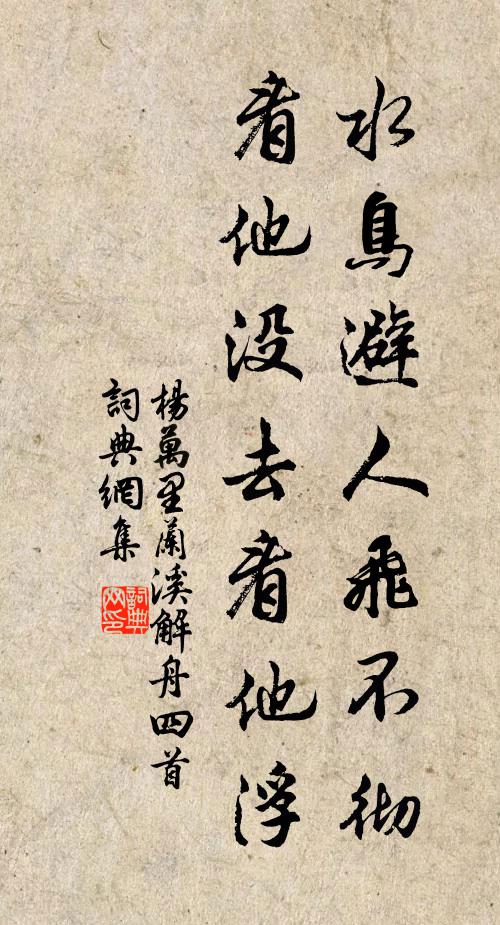 水鳥避人飛不彻
看他没去看他浮
楊萬里蘭溪解舟四首
詞典網集
詞典
网印